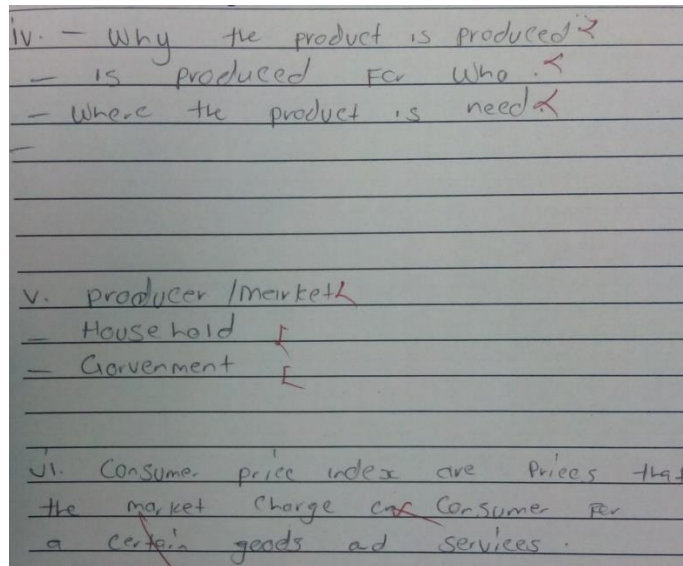 iv. - Why the product is produced?
- is produced For who.
- Where the product is need.
-
v. producer /market
- Household
- Gorvenment
vi. Consumer price index are Prices that
the market Charge Consumer For
a certain goods ad services.